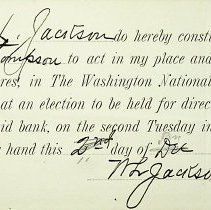 Jackson do hereby consti
ompson to act in my place and
res, in The Washington National
at an election to be held for direc
id bank, on the second Tuesday in
hand this 2nd day of Dec
W L Jackso